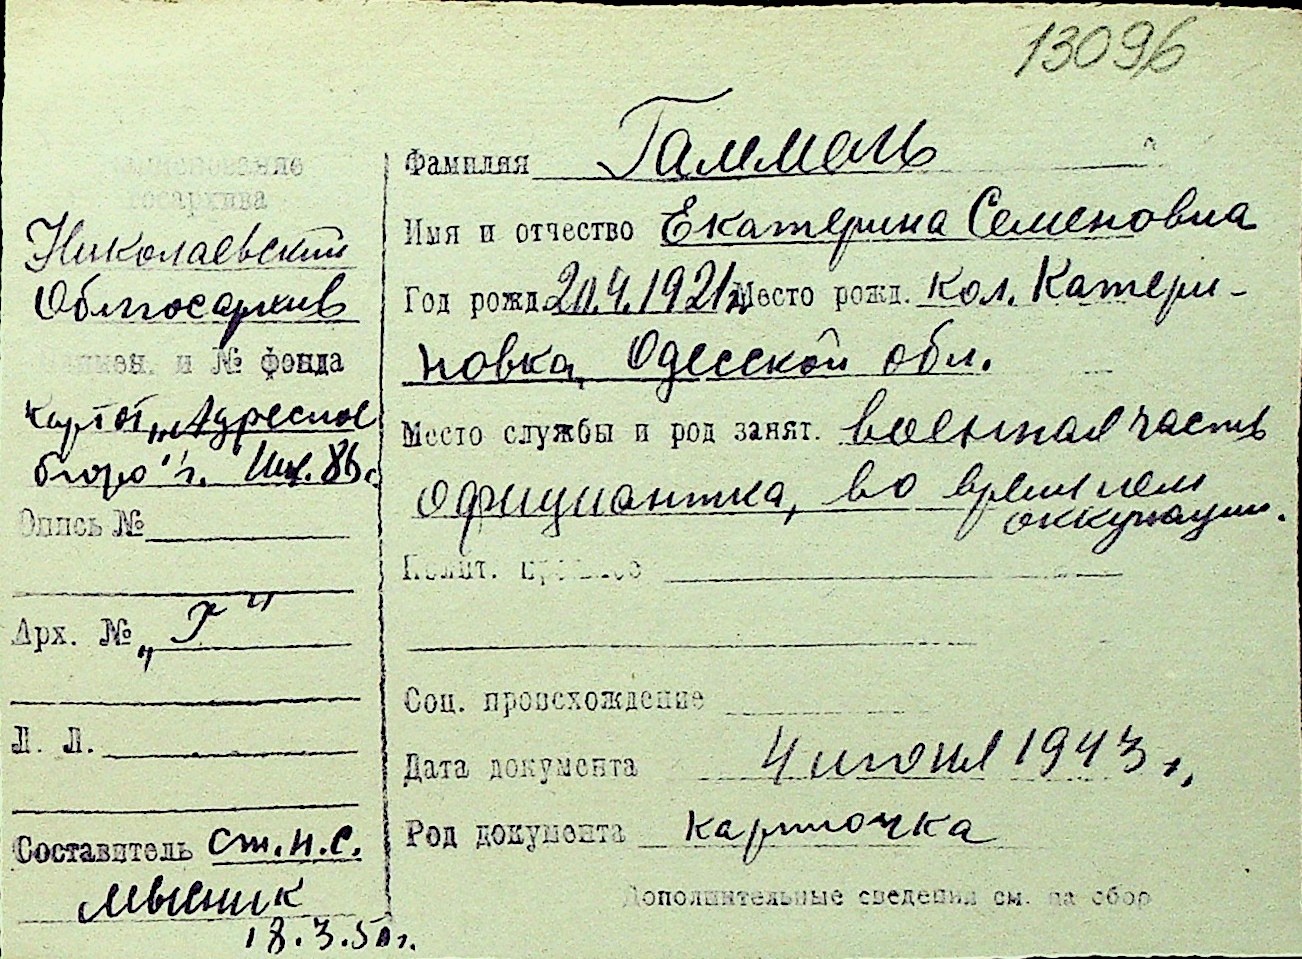 13096
Наименование
госархива
Николаевский
Облгосархив
Наимен. и № фонда
Картот. "Адресное
бюро" г. Ник. 86 г.
Опись №
Арх. № „Г"
Л. Л.
Составитель ст.н.с.
18.3.50г.
Фамилия Гаммель
Имя и отчество Екатерина Семеновна
Год рожд. 20.4.1921г. Место рожд. кол. Катери-
новка, Одесской обл.
Место службы и род занят. военная часть
официантка, во время нем
оккупации.
Полит. прошлое
Соц. происхождение
Дата документа 4 июня 1943 г.
Род документа карточка
Дополнительные сведения см. на обор